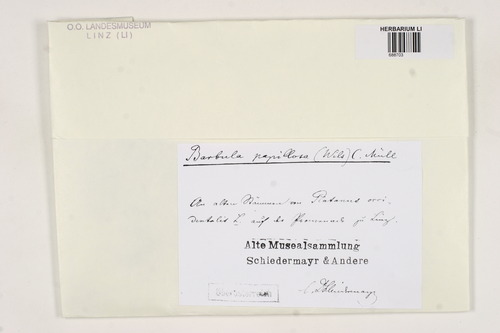 O.Ö. LANDESMUSEUM
LINZ (LI)
HERBARIUM LI
Barbula papillosa (Wils) C. Müll
An alten Stämmen von Platanus occi-
dentalis L. auf der Promenade zu Linz.
Alte Musealsammlung
Schiedermayr & Andere
C. Schiedermayr